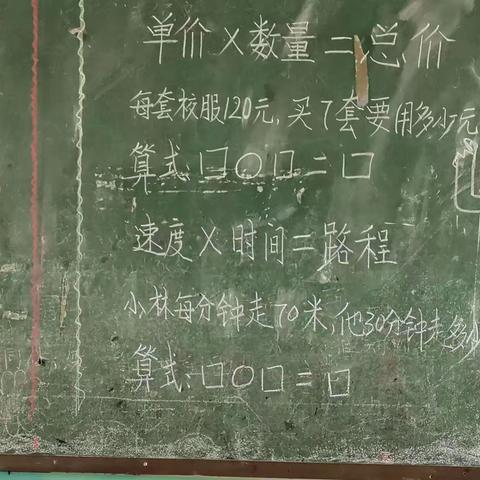 单价×数量=总价
每套校服120元,买7套要用多少元
算式:□○□=□
速度×时间=路程
小林每分钟走70米,他30分钟走多少
算式:□○□=□